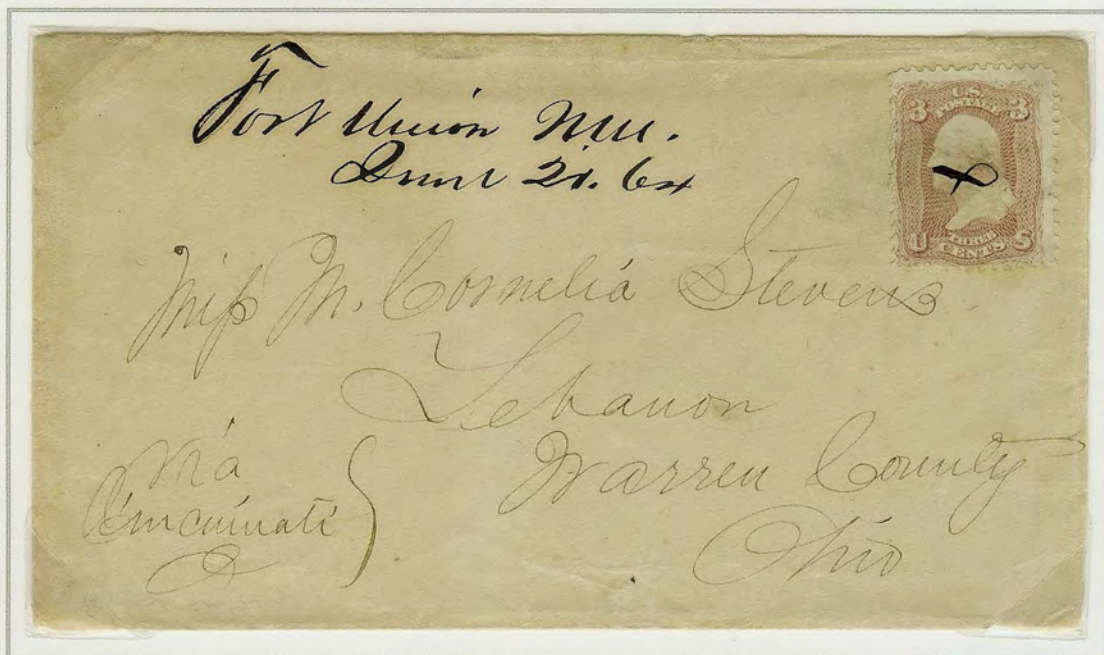 Fort Union N.M.
June 21. 64
3 U.S. POSTAGE 3
THREE
U CENTS S
Miss M. Cornelia Stevens
Lebanon
Warren County
Ohio
Via
Cincinnati
O